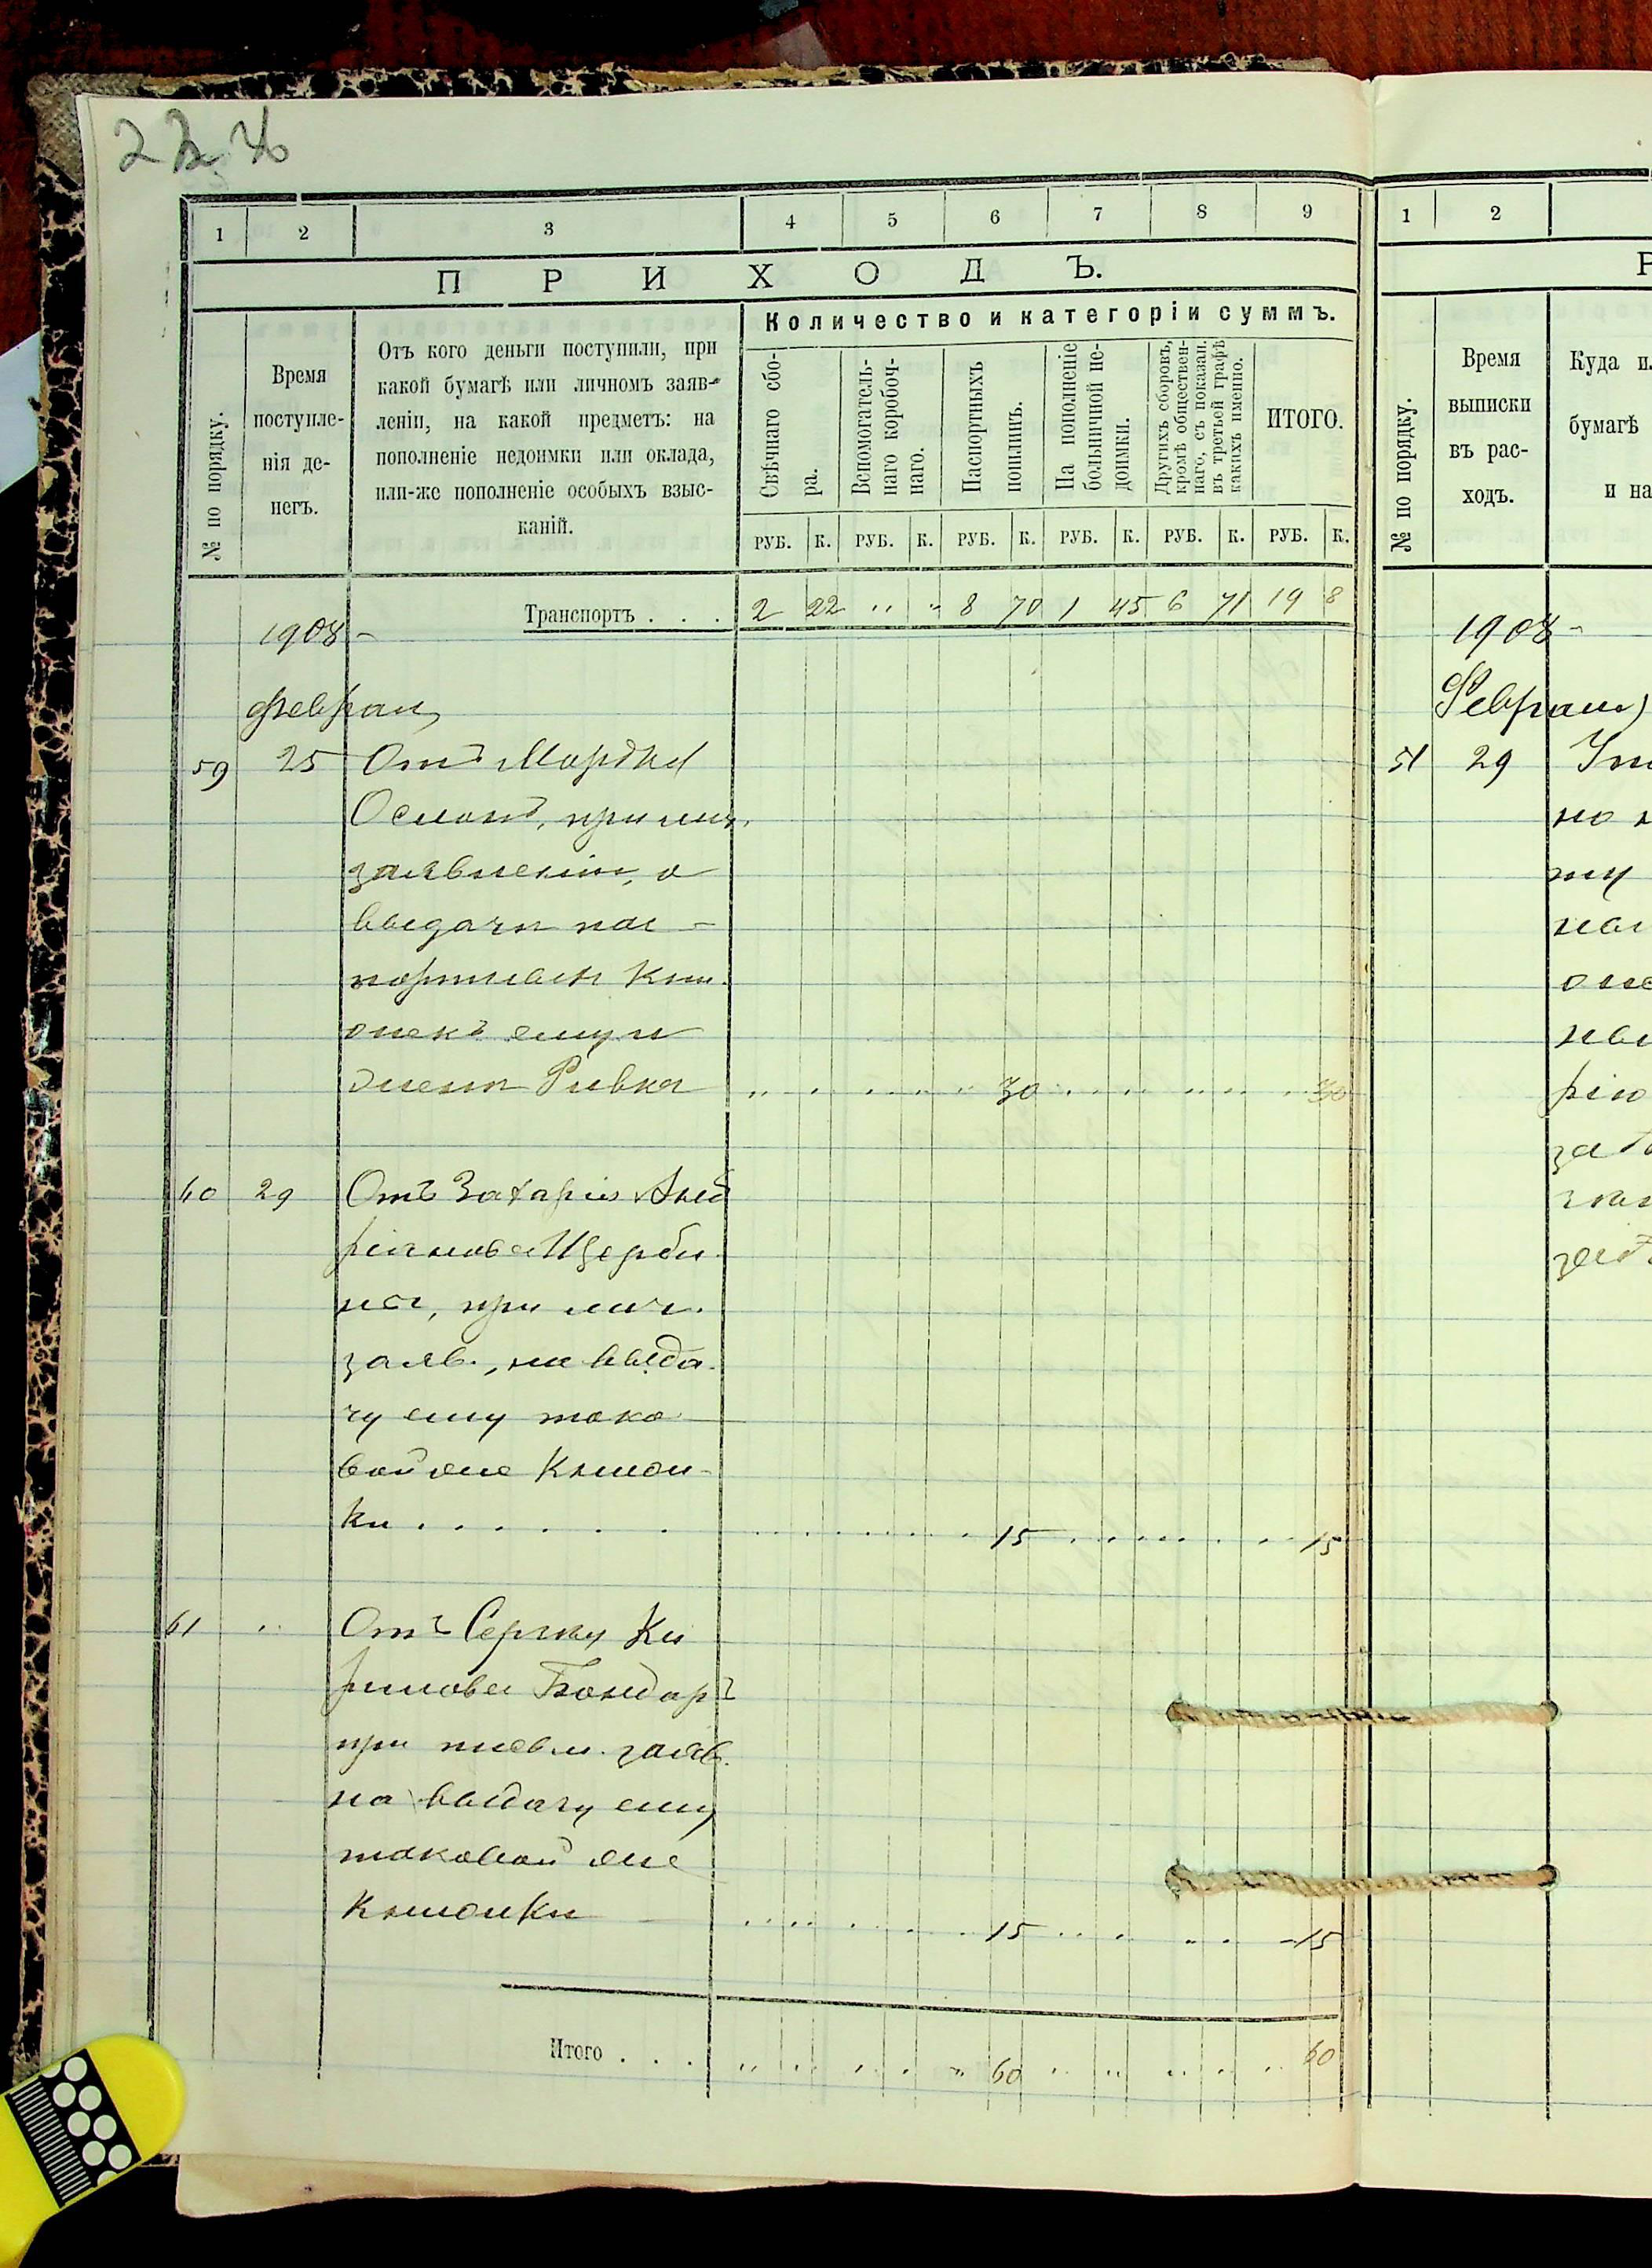 1 2 3 4 5 6 7 8 9
ПРИХОДЪ.
№ по порядку.
Время
поступле-
нія де-
негъ.
Отъ кого деньги поступили, при
какой бумагѣ или личномъ заяв-
леніи, на какой предметъ: на
пополненіе недоимки или оклада,
или-же пополненіе особыхъ взыс-
каній.
Количество и категоріи суммъ.
Свѣчнаго сбо-
ра.
Вспомогатель-
наго коробоч-
наго.
Паспортныхъ
пошлинъ.
На пополненіе
больничной не-
доимки.
Другихъ сборовъ,
кромѣ обществен-
наго, съ показан.
въ третьей графѣ
какихъ именно.
ИТОГО.
РУБ. К. РУБ. К. РУБ. К. РУБ. К. РУБ. К. РУБ. К.
Транспортъ . . . 2 22 " " 8 70 1 45 6 71 19 8
1908
Февраля
59 25 Отъ Мордка
при лич.
заявленіи, о
выдачи пас-
портныхъ кни-
жекъ ему и
женѣ Ривкѣ 30 30
60 29 Отъ Захарія Анд
ріянова Щерби
на, при лич.
заяв., на выда-
чу ему тако-
вой же книж-
ки . . . . . . 15 15
61 " Отъ
Бондаръ
при письм. заяв.
на выдачу ему
таковой же
книжки 15 15
Итого . . . 60 60
1 2
Р
№ по порядку.
Время
выписки
въ рас-
ходъ.
Куда и
бумагѣ
и на
1908
Февраля
51 29
но
зае